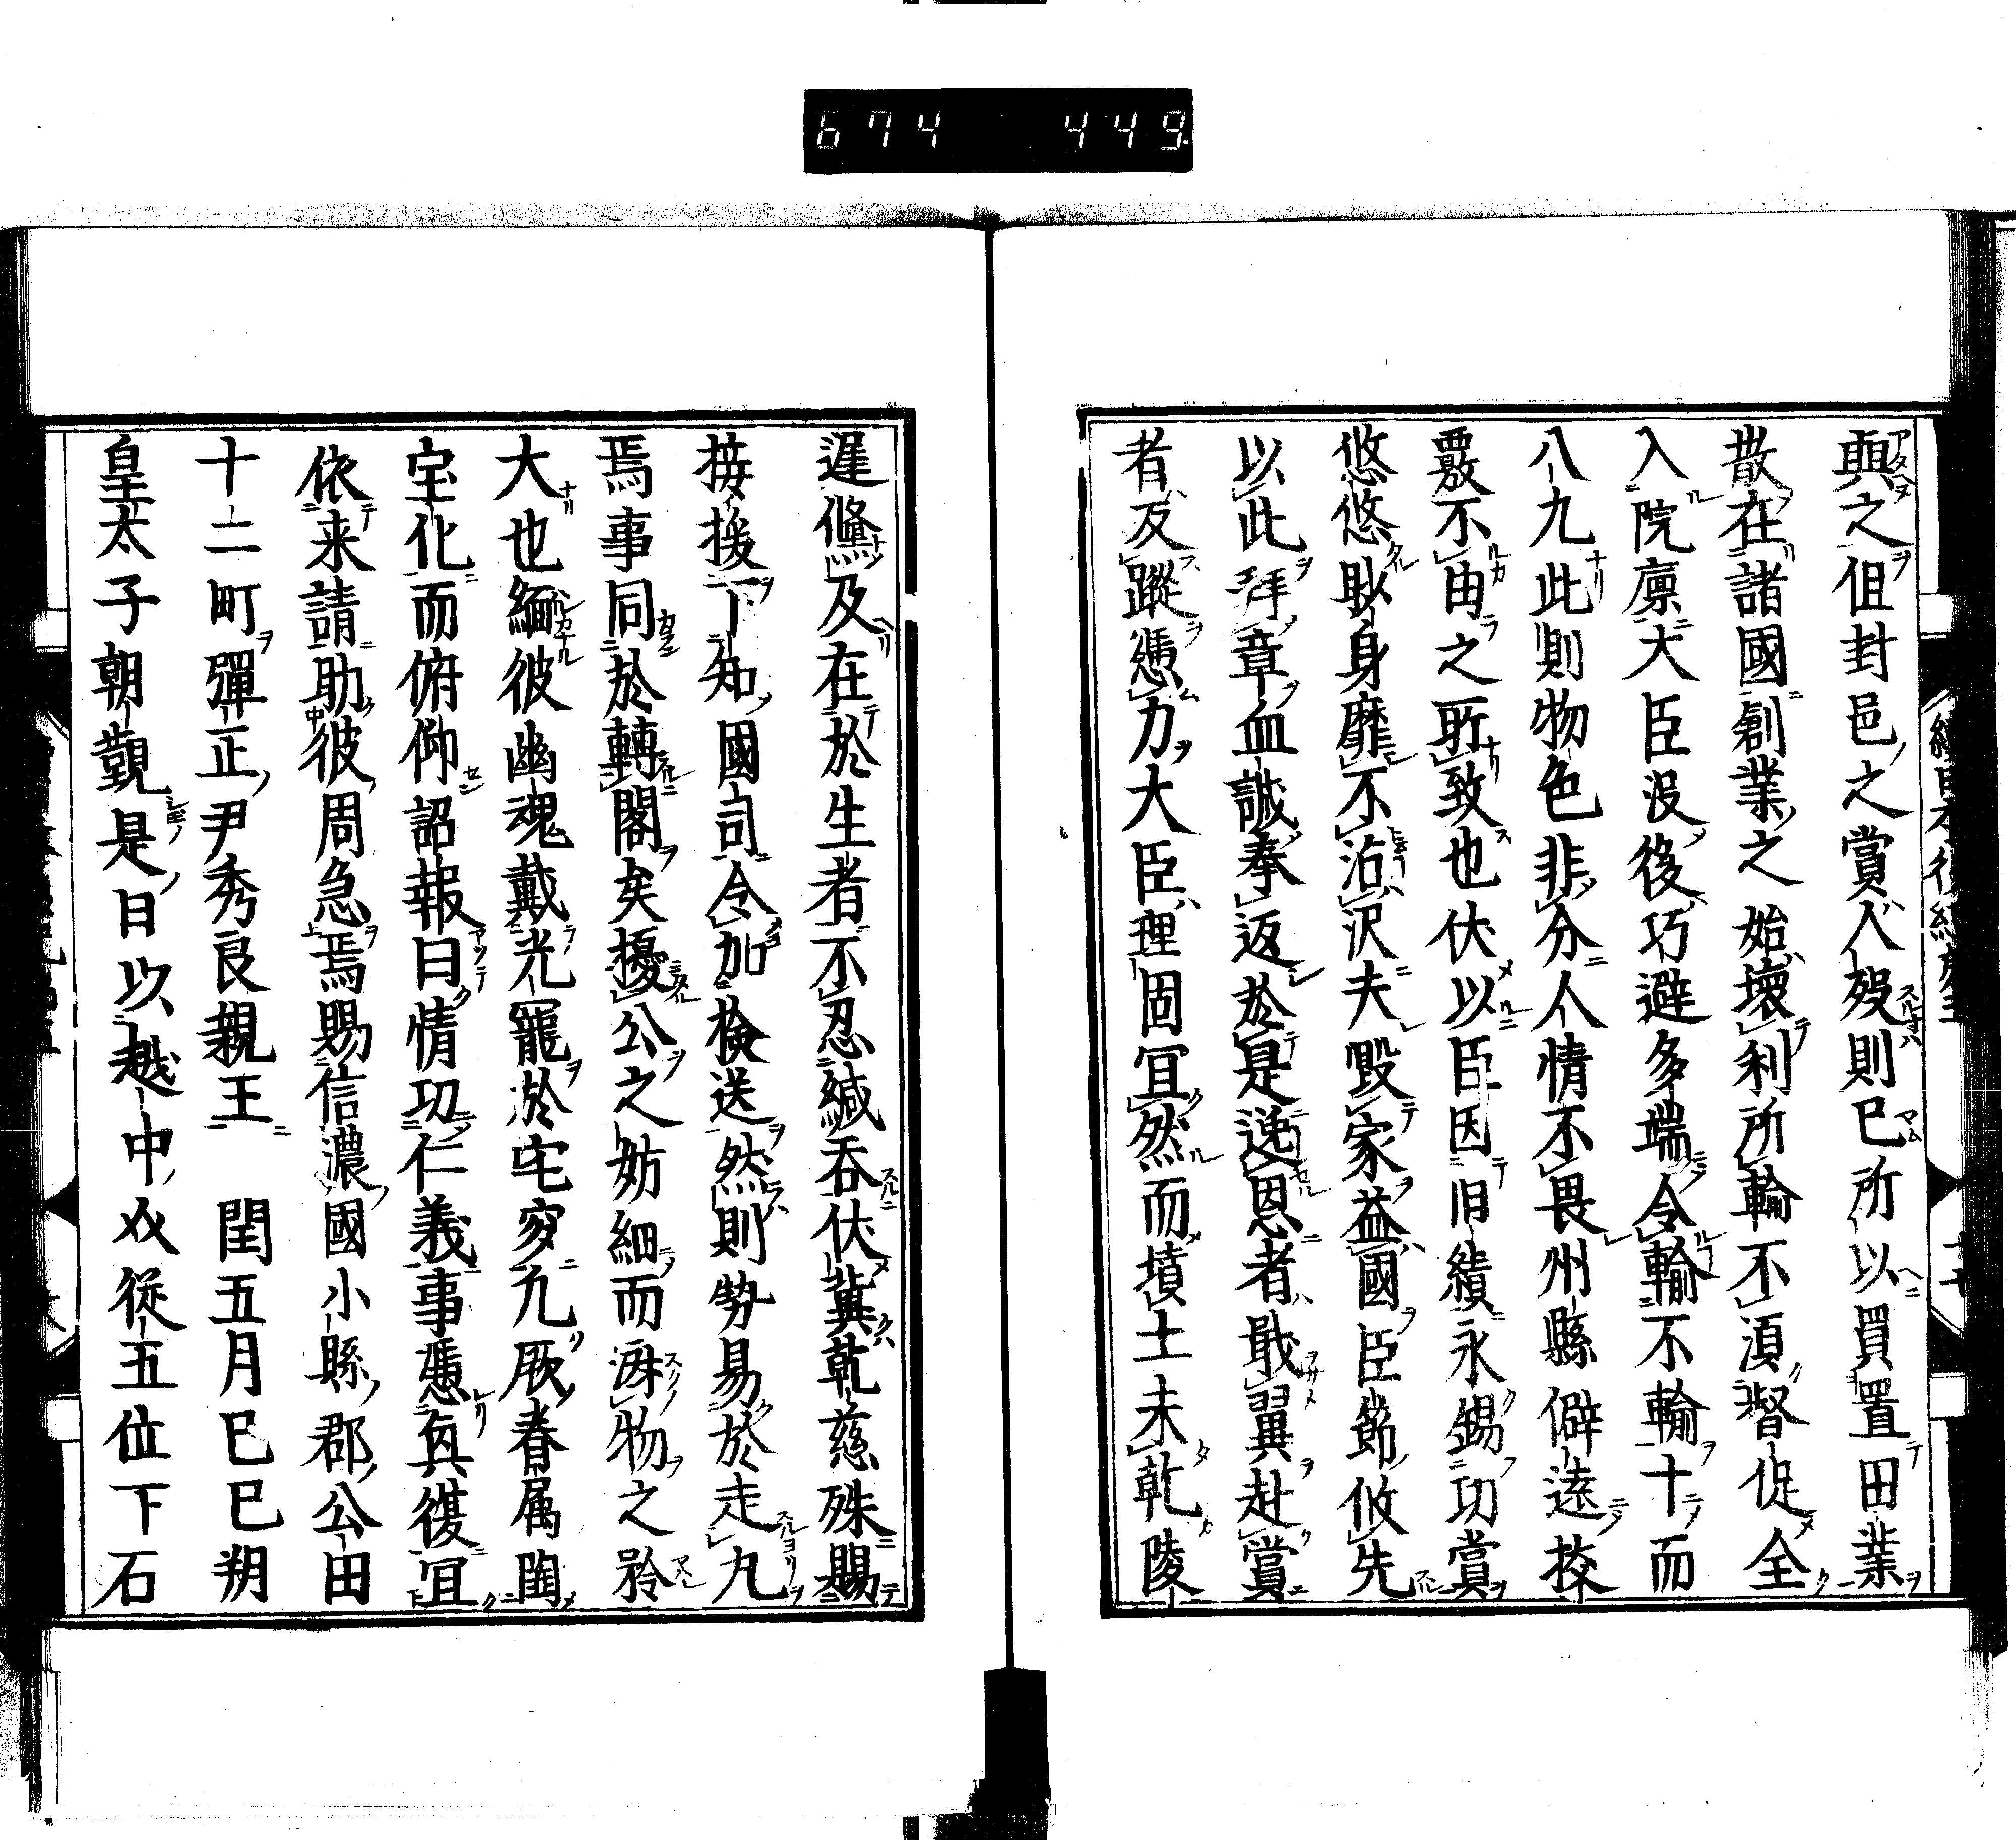 674 449
與之伹封邑之賞人歿則已所以買置田業
散在諸國創業之始壞利所輸不湏督促全
入院廪大臣没後巧避多端令輸不輸十而
八九此則物色非分人情不畏州縣僻遠挍
覈不由之所致也伏以臣因旧績永錫功賞
悠悠眇身靡不沾沢夫毀家益國臣節攸先
以此拜章血誠奉返於是逸恩者戢翼赴賞
者反蹤憑力大臣理固冝然而墳土未乾陵
遅儵及在於生者不忍緘吞伏冀乾慈殊賜
接援下知國司令加検送然則勢易於走丸
焉事同於轉閣矣擾公之妨細而済物之矜
大也緬彼幽魂戴光寵於窀穸凢厥春属陶
宝化而俯仰詔報曰情切仁義事憑負復冝
依来請助彼周急焉賜信濃國小縣郡公田
十二町彈正尹秀良親王　閏五月巳巳朔
皇太子朝覲是日以越中𠆢従五位下石